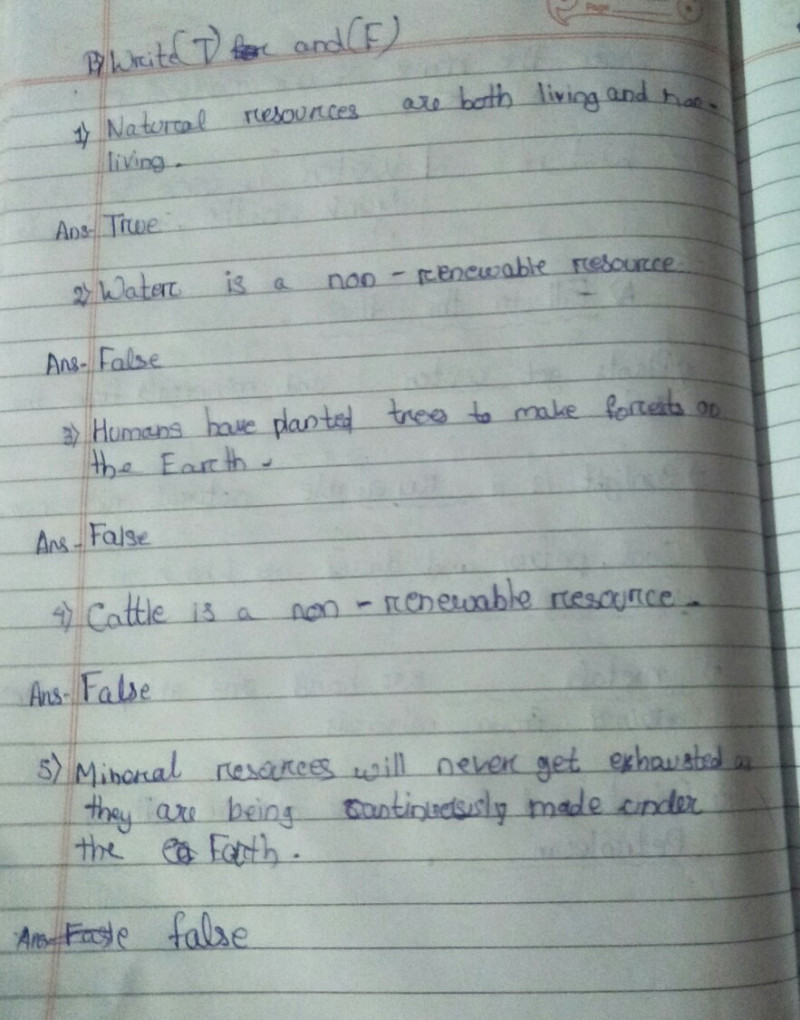 Page
B) Write (T) for and (F)
1) Natural resources are both living and non-
living.
Ans- True
2) Water is a non-renewable resource.
Ans- False
3) Humans have planted trees to make forests on
the Earth.
Ans- False
4) Cattle is a non-renewable resource.
Ans- False
5) Mineral resources will never get exhausted as
they are being continuously made under
the Earth.
Ans- false